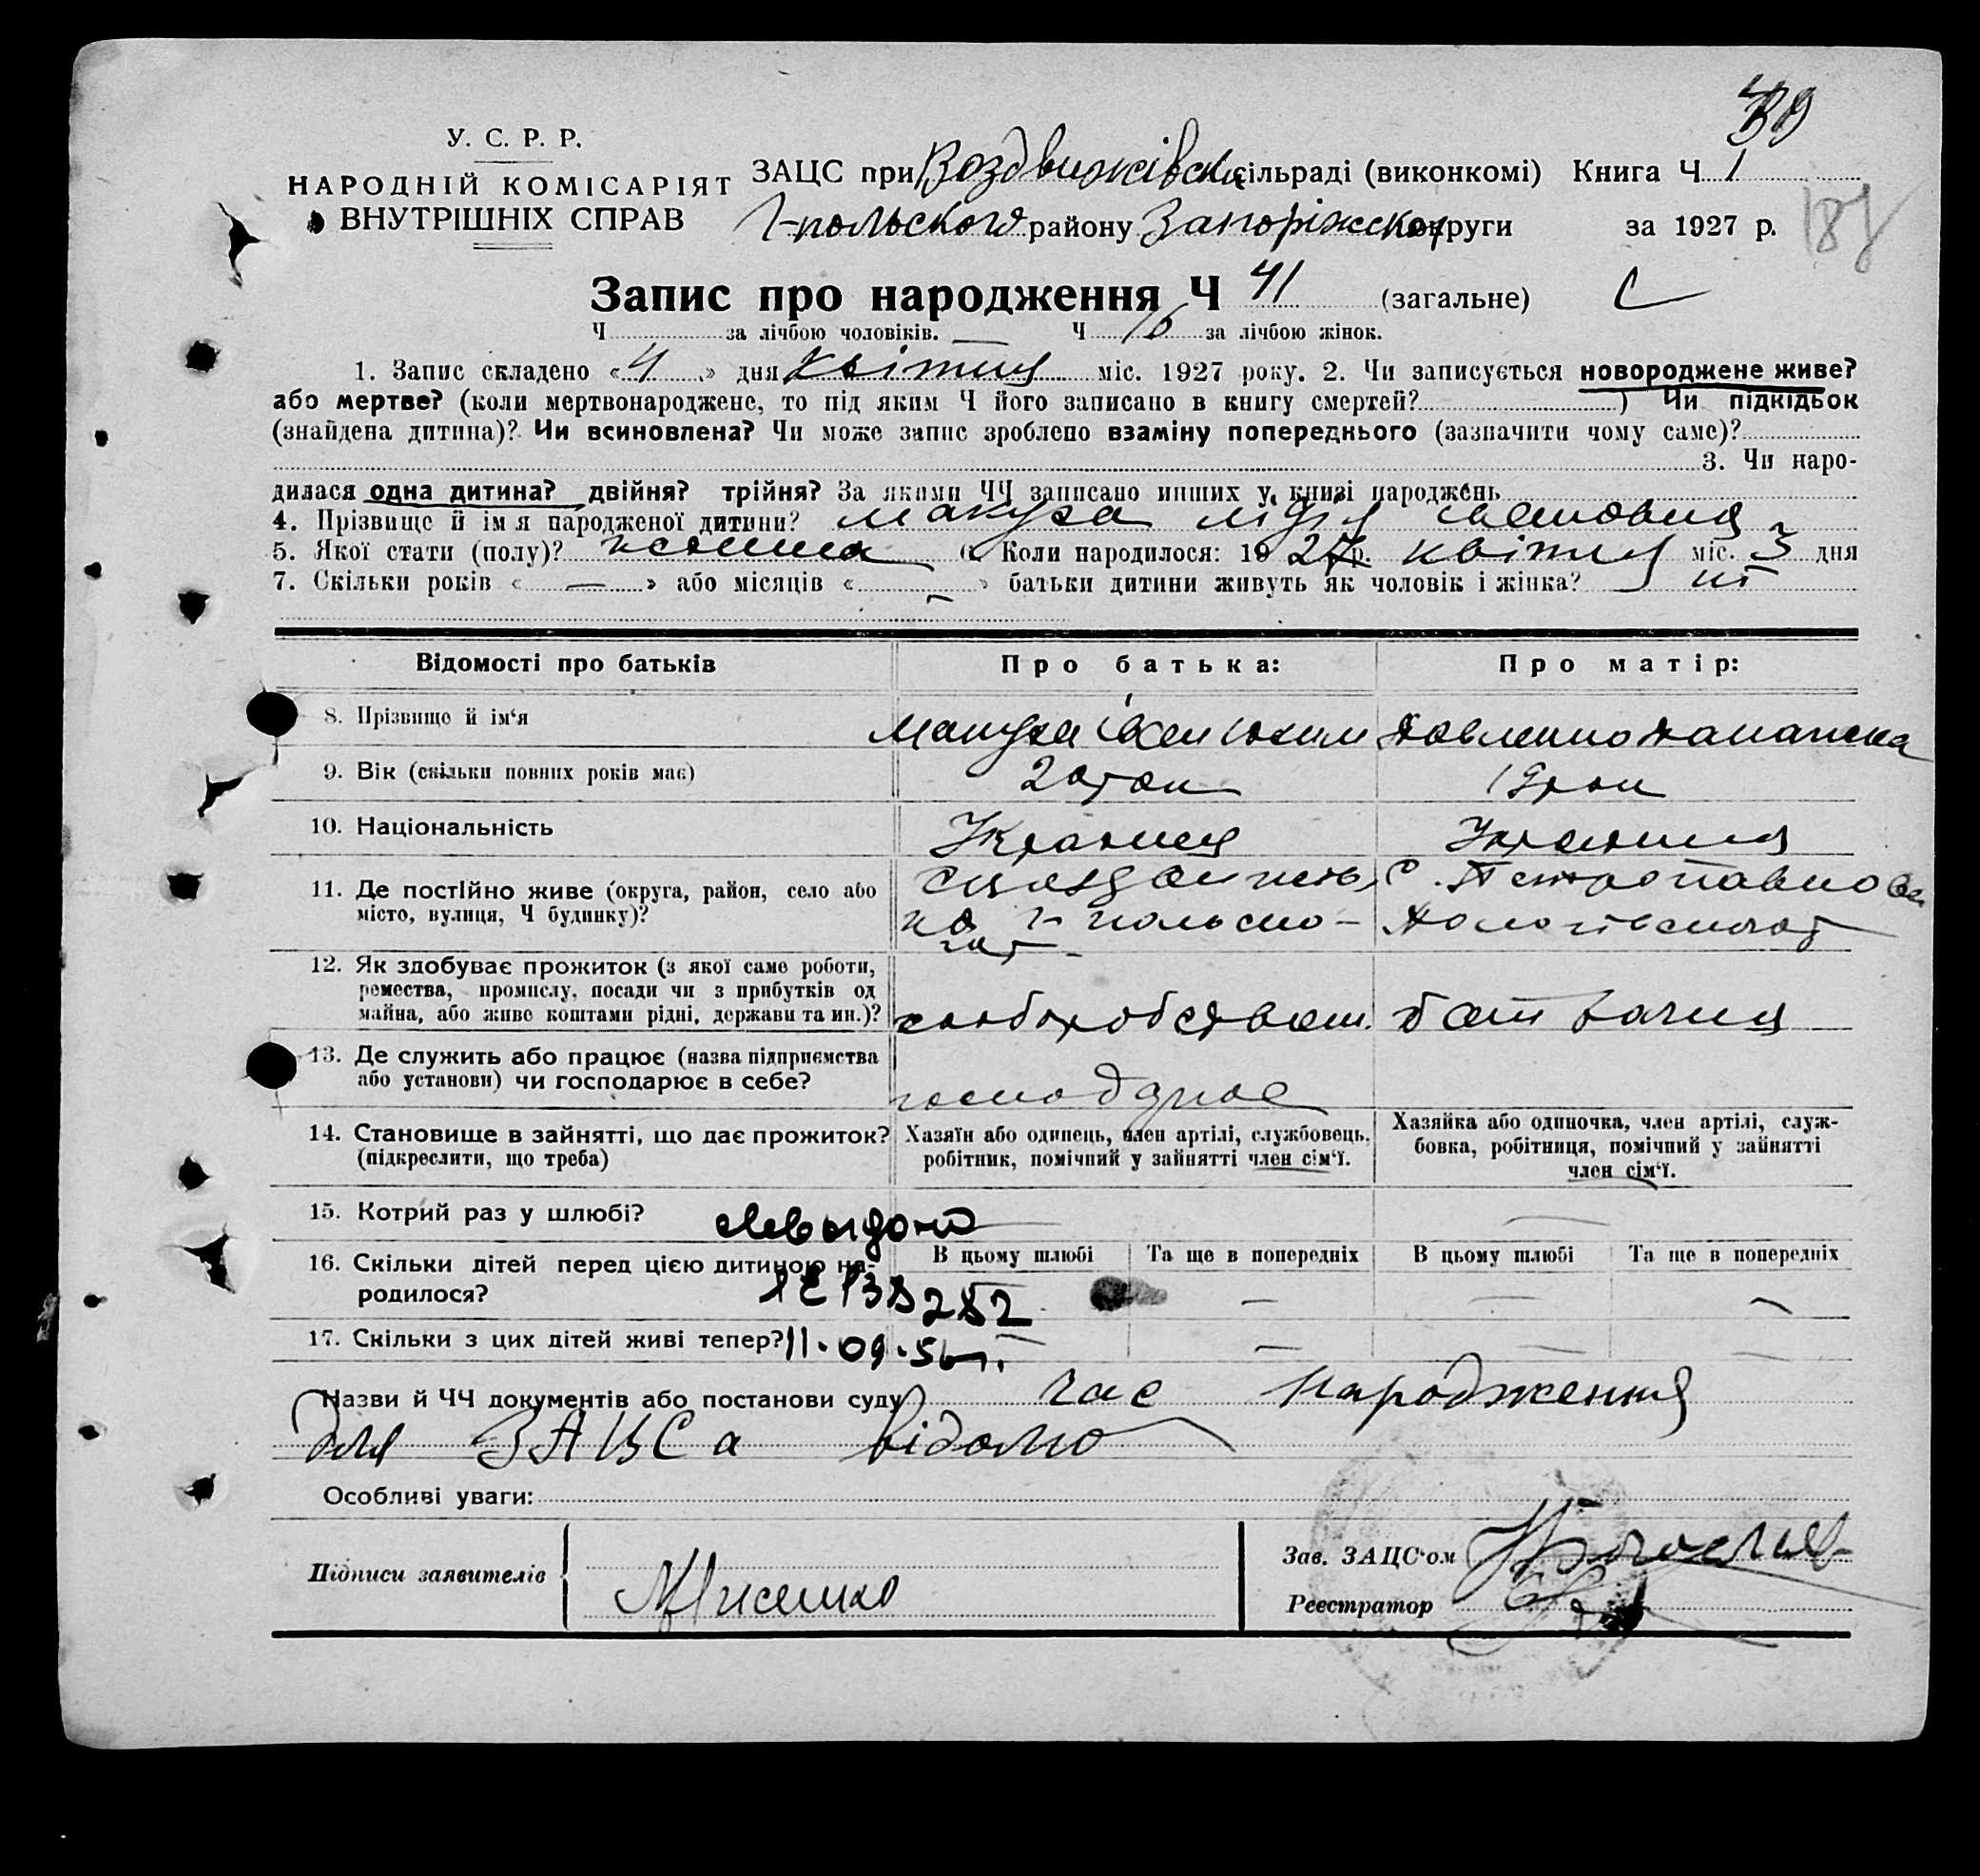 39
У. С. Р. Р.
НАРОДНІЙ КОМІСАРІЯТ
ВНУТРІШНІХ СПРАВ
ЗАЦС при Воздвижівськ сільраді (виконкомі) Книга Ч 1
Г-польского району Запоріжской округи за 1927 р.
187
Запис про народження Ч 41 (загальне)
Ч за лічбою чоловіків. Ч 16 за лічбою жінок.
1. Запис складено «4» дня квітня міс. 1927 року. 2. Чи записується новороджене живе?
або мертве? (коли мертвонароджене, то під яким Ч його записано в книгу смертей? ) Чи підкідьок
(знайдена дитина)? Чи всиновлена? Чи може запис зроблено взаміну попереднього (зазначити чому саме)?
3. Чи наро-
дилася одна дитина? двійня? трійня? За якими ЧЧ записано инших у книзі народжень
4. Прізвище й імя народженої дитини? Макуха Лідія Івановна
5. Якої стати (полу)? жіноча 6. Коли народилося: 1927 р. квітня міс. 3 дня
7. Скільки років « — » або місяців « » батьки дитини живуть як чоловік і жінка? ні
Відомості про батьків Про батька: Про матір:
8. Прізвище й ім‘я Макуха Іван Юхим Павленко
9. Вік (скільки повних років має) 20 рок 19 рок
10. Національність Українец Українка
11. Де постійно живе (округа, район, село або
місто, вулиця, Ч будинку)? с. Петропавловка
12. Як здобуває прожиток (з якої саме роботи,
ремества, промислу, посади чи з прибутків од
майна, або живе коштами рідні, держави та ин.)? хлоборобством батрачка
13. Де служить або працює (назва підприємства
або установи) чи господарює в себе?
14. Становище в зайнятті, що дає прожиток?
(підкреслити, що треба)
Хазяїн або одинець, член артілі, службовець,
робітник, помічний у зайнятті член сім‘ї.
Хазяйка або одиночка, член артілі, служ-
бовка, робітниця, помічний у зайнятті
член сім‘ї.
15. Котрий раз у шлюбі? — —
16. Скільки дітей перед цією дитиною на-
родилося?
В цьому шлюбі Та ще в попередніх В цьому шлюбі Та ще в попередніх
17. Скільки з цих дітей живі тепер? 11.09.56 г.
Назви й ЧЧ документів або постанови суду час народження
для ЗАЦСа відомо
Особливі уваги:
Підписи заявителів
Зав. ЗАЦС‘ом
Реєстратор